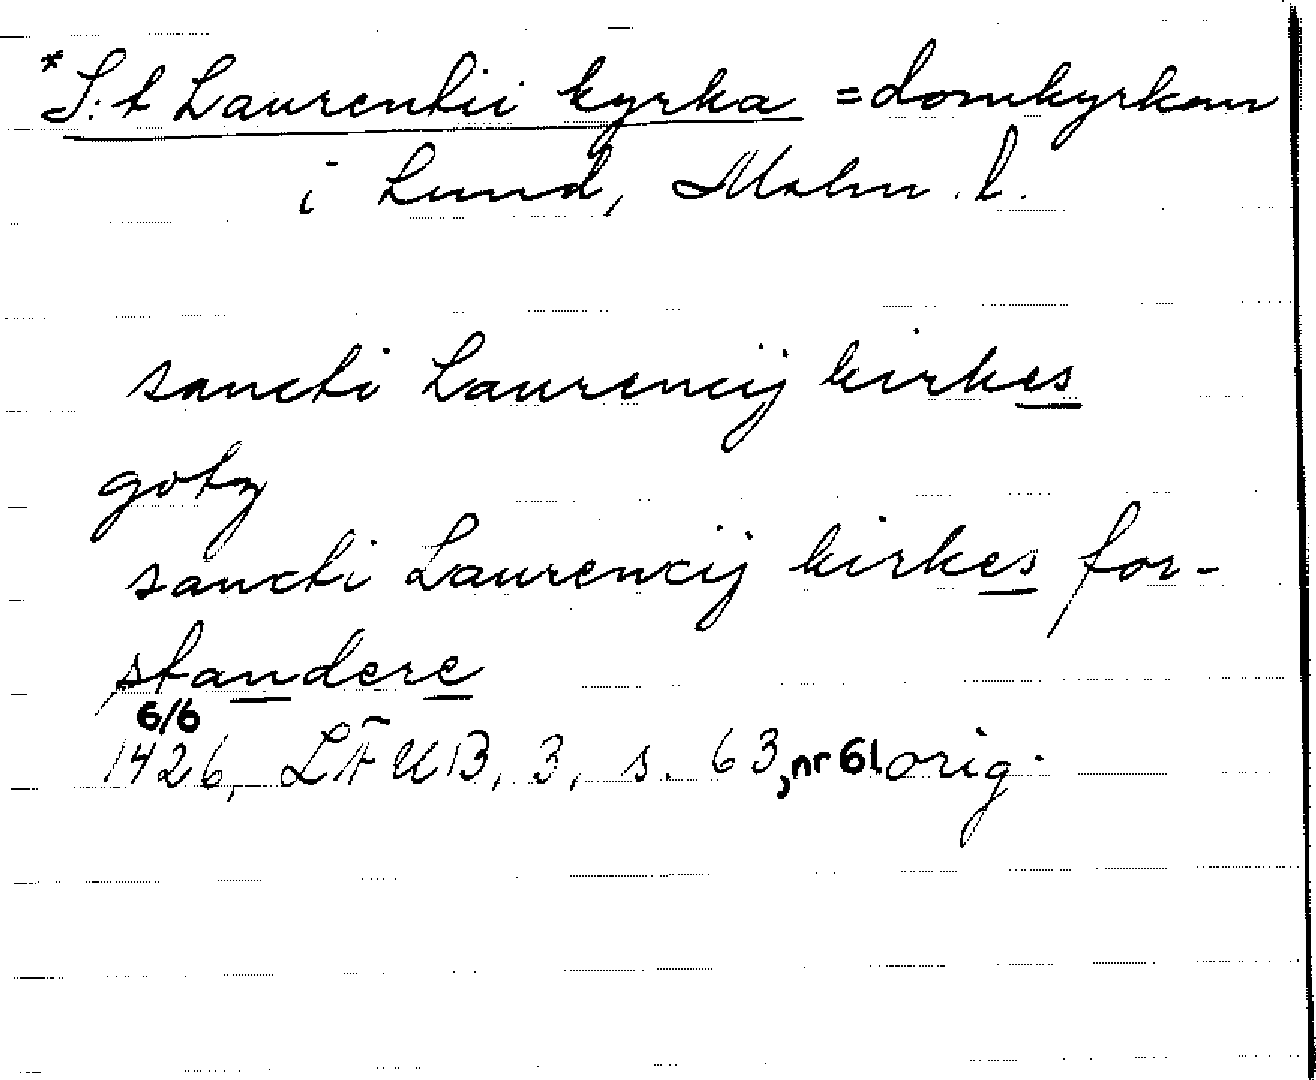 *S:t Laurentii kyrka = domkyrkan
i Lund, Malm. l.
sancti Laurencij kirkes
gotz
sancti Laurencij kirkes for-
standere
6/6
1426, LÄUB, 3, s. 63, nr 61. orig.